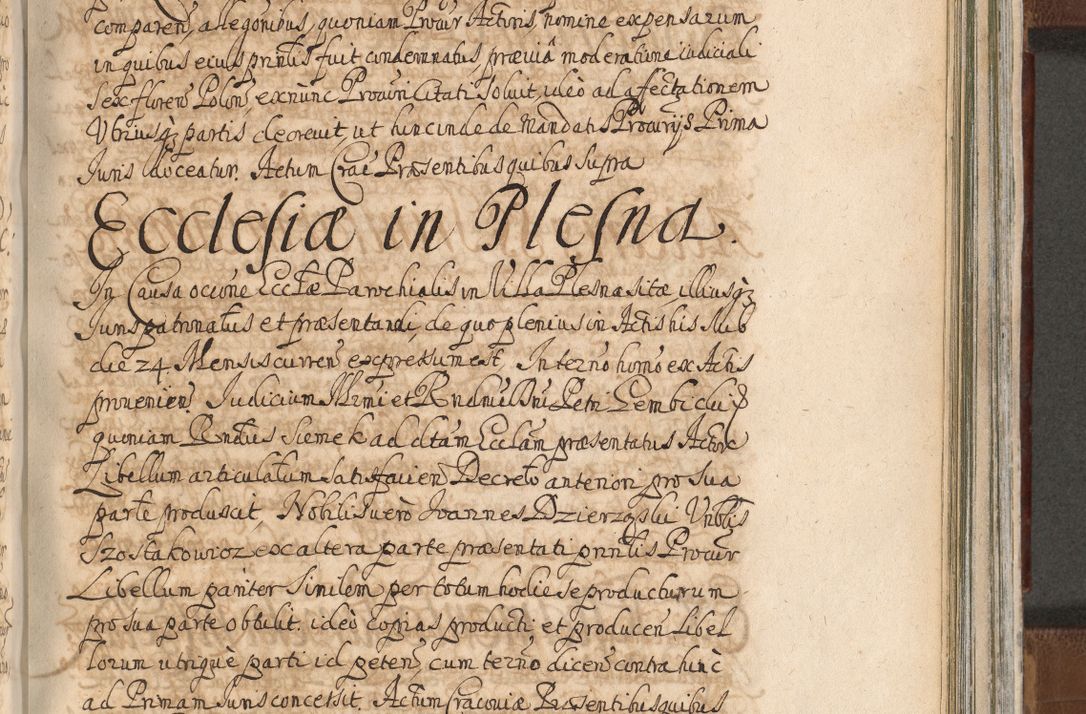 comparens, allegonibus, quoniam Procur Actoris, nomine expensarum
in quibus eius prntis fuit condemnatus, prævia moderatione iudiciali
sex florens Polon, exnunc Provinci Citati soluit, ideò ad affectationem
Vtriusq3 partis decreuit, ut hincinde de Mandatis Procurijs Prima
Iuris doceatur. Actum Crac Præsentibus quibus supra
Ecclesiæ in Plesna.
In Causa occione Ecctæ Parochialis in Villa Plesna sitæ illiusq3
Iuris patronatus et præsentandi, de quo plenius in Actis his sub
die 24 Mensis curren expressum est, In termo homo ex Actis
prouenien Iudicium Illrmi et Rndmi Dni Petri Gembicki
quoniam Rndus Siemek ad dtam Ecclam præsentatus Actor
Libellum articulatum satisfacien Decreto anteriori pro sua
parte produxit, Nobilis uero Joannes Dzierzgski Vrblis
Szostakowicz ex altera parte præsentati prntis Procur
Libellum pariter similem per totum hodie se producturum
pro sua parte obtulit. ideò copias producti et producen Libel
lorum utriquè parti id peten, cum termo dicen contra hinc
ad Primam Iuris concessit. Actum Cracoviæ Præsentibus quibus